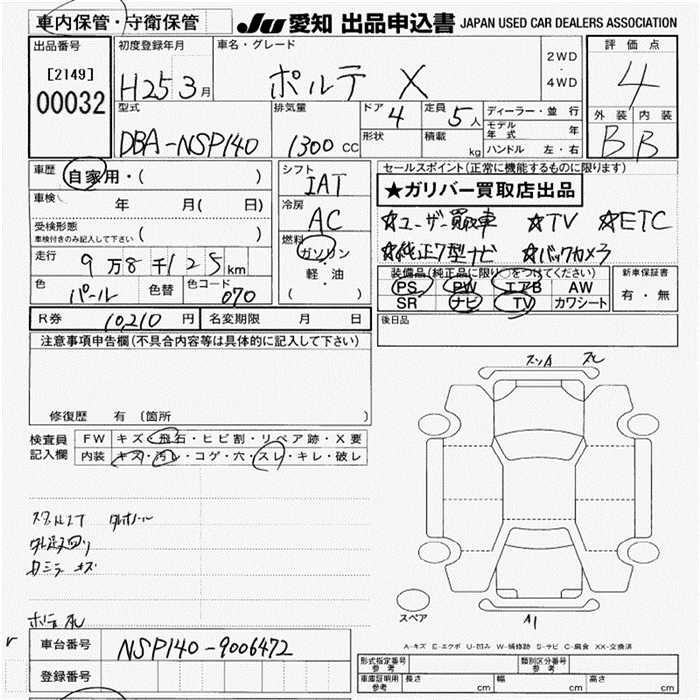 車内保管・守衛保管
JU 愛知 出品申込書 JAPAN USED CAR DEALERS ASSOCIATION
出品番号 初度登録年月 車名・グレード 評価点
[2149] 2WD
00032 H25 3月 ポルテ X ・ 4
4WD
型式 排気量 ドア 4 定員 5人 ディーラー・並 行 外装 内装
DBA-NSP140 1300cc 形状 積載 kg モデル年式 年 B B
ハンドル 左・右
車歴 自家用・( ) シフト セールスポイント(正常に機能するものに限ります)
IAT ★ガリバー買取店出品
車検 年 月( 日) 冷房 ☆ユーザー買取車 ☆TV ☆ETC
受検形態 AC
車検付きのみ記入して下さい ( ) 燃料 ☆純正7型ナビ ☆バックカメラ
走行 9万8千125km ガソリン 装備品(純正品に限り○をつけてください) 新車保証書
軽・油 PS PW エアB AW 有・無
色 パール 色替 色コード 070 ( ) SR ナビ TV カワシート
R券 10,210円 名変期限 月 日 後日品
注意事項申告欄(不具合内容等は具体的に記入して下さい)
修復歴 有 (箇所
検査員 FW キズ・飛石・ヒビ割・リペア跡・X要
記入欄 内装 キズ・汚レ・コゲ・穴・スレ・キレ・破レ
A1
スペア
A-キズ E-エクボ U-凹み W-補修跡 S-サビ C-腐食 XX-交換済
車台番号 NSP140-9006472
登録番号
形式指定番号 参考 類別区分番号 参考
車庫証明用 参考 長さ cm 幅 cm 高さ cm